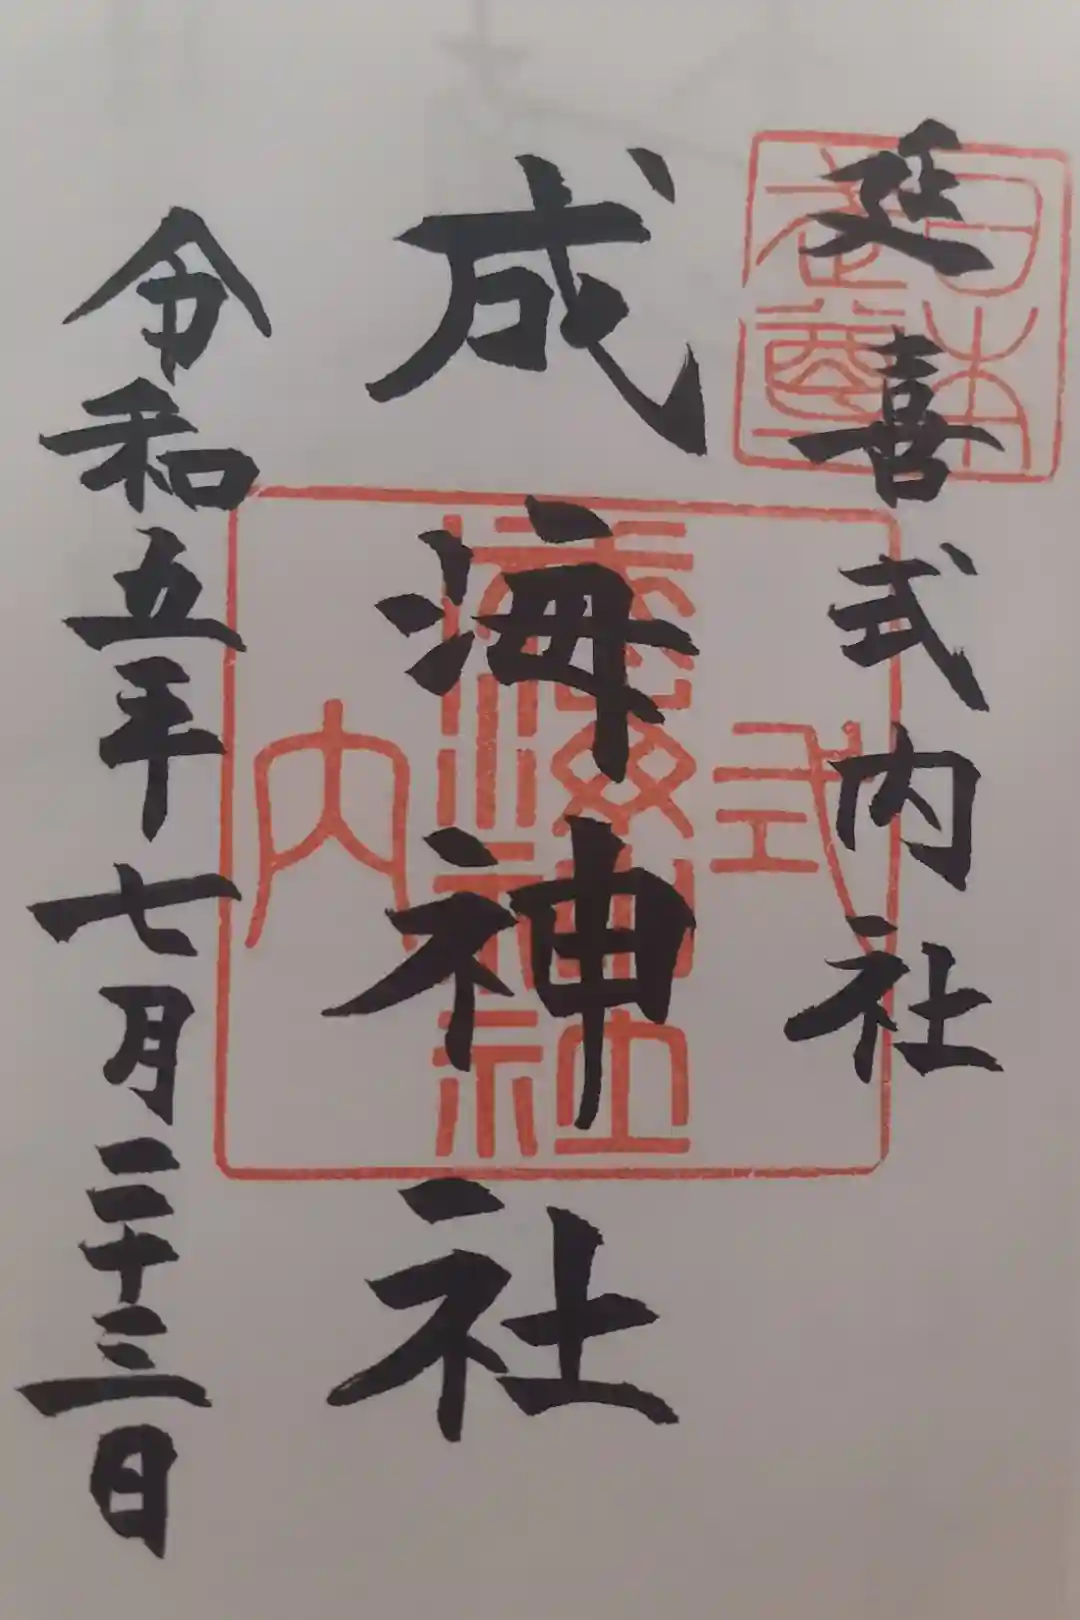 延喜式内社
日本武尊
成海神社
式
成海神社
内
令和五年七月二十三日